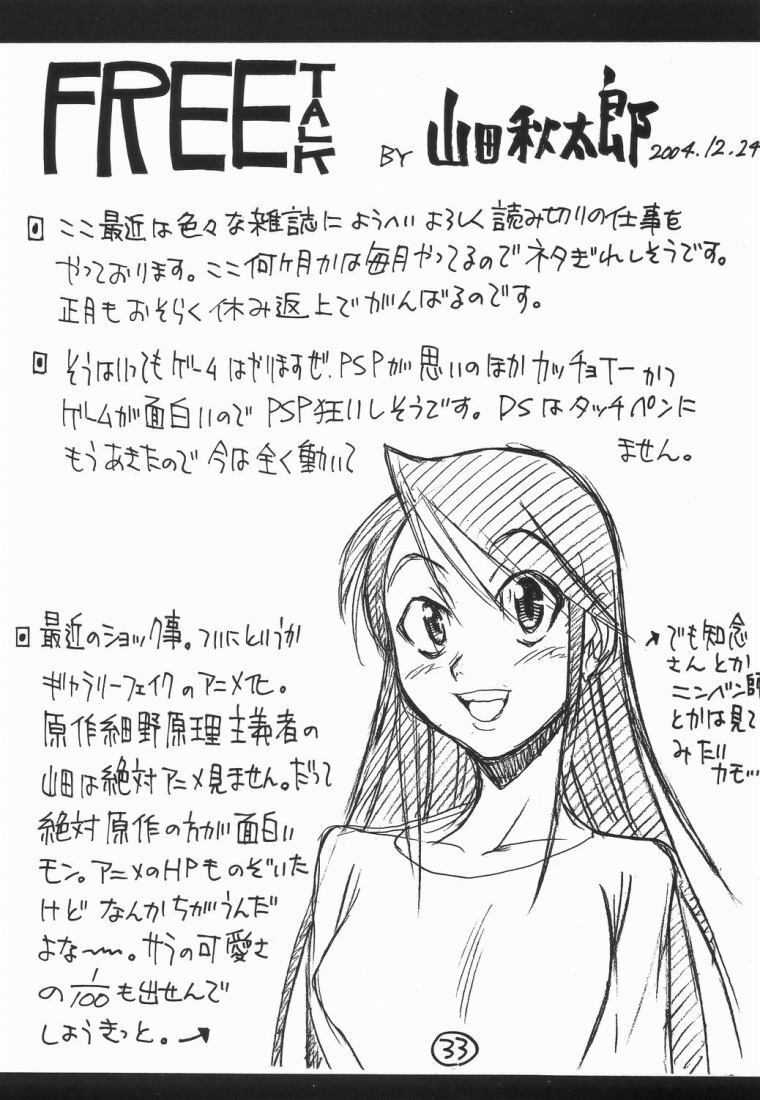 FREE TALK
BY 山田秋太郎 2004.12.24
ここ最近は色々な雑誌にようへいよろしく読み切りの仕事を
やっております。ここ何ヶ月かは毎月やってるのでネタぎれしそうです。
正月もおそらく休み返上でがんばるのです。
そうはいってもゲームはやりますぜ、PSPが思いのほかカッチョイーかつ
ゲームが面白いのでPSP狂いしそうです。DSはタッチペンに
もうあきたので今は全く動いて ません。
最近のショック事。ついにというか
ギャラリーフェイクのアニメ化。
原作細野原理主義者の
山田は絶対アニメ見ません。だって
絶対原作の方が面白い
モン。アニメのHPものぞいた
けどなんかちがうんだ
よな〜〜。サラの可愛さ
の1/100も出せんで
しょうきっと。→
↗でも知念
さんとか
ニンベン師
とかは見て
みたい
カモ…
33